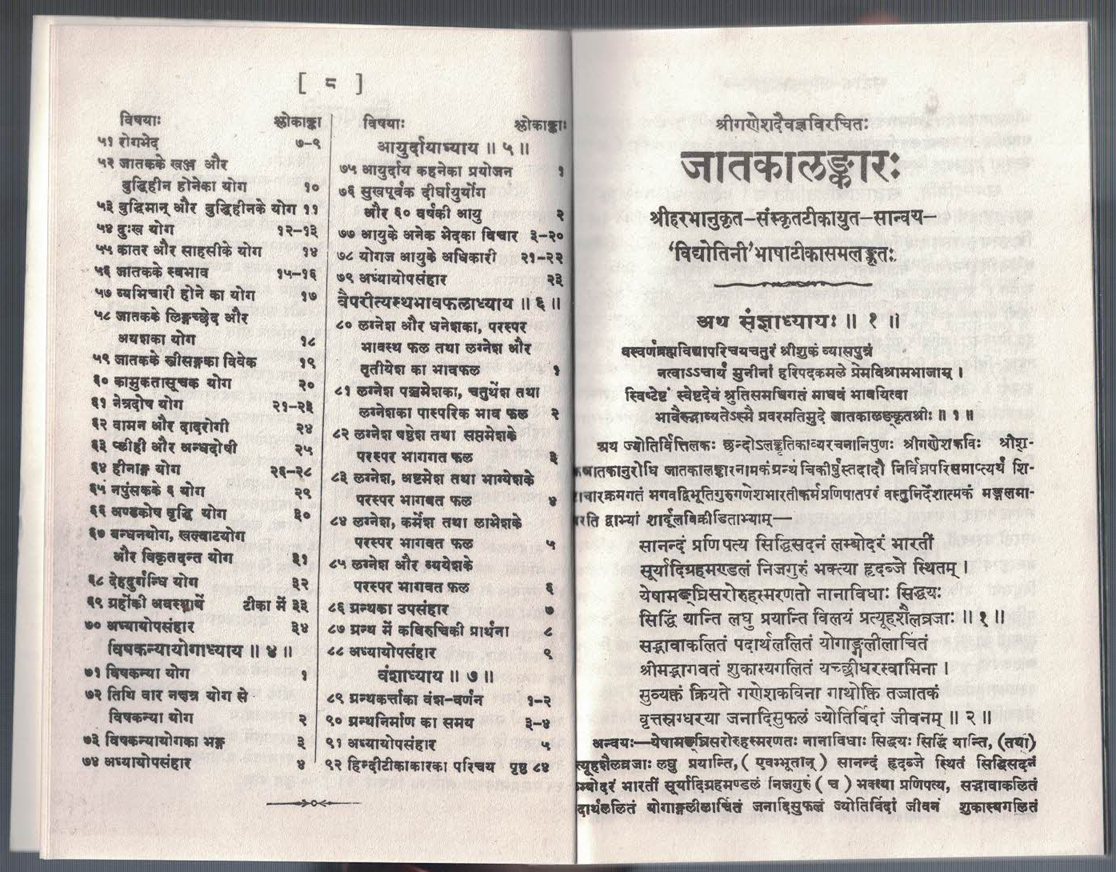 [ ८ ]
विषयाः श्लोकाङ्का
५१ रोगभेद ७-९
५२ जातकके खञ्ज और
बुद्धिहीन होनेका योग १०
५३ बुद्धिमान् और बुद्धिहीनके योग ११
५४ दुःख योग १२-१३
५५ कातर और साहसीके योग १४
५६ जातकके स्वभाव १५-१६
५७ व्यभिचारी होने का योग १७
५८ जातकके लिङ्गच्छेद और
अयशका योग १८
५९ जातकके स्त्रीसङ्गका विवेक १९
६० कामुकतासूचक योग २०
६१ नेत्रदोष योग २१-२३
६२ वामन और दादरोगी २४
६३ प्लीही और अन्धदोषी २५
६४ हीनाङ्ग योग २६-२८
६५ नपुंसकके ६ योग २९
६६ अण्डकोष वृद्धि योग ३०
६७ बन्धनयोग, खल्वाटयोग
और विकृतदन्त योग ३१
६८ देहदुर्गन्धि योग ३२
६९ ग्रहोंकी अवस्थायें टीका में ३३
७० अध्यायोपसंहार ३४
विषकन्यायोगाध्याय ॥ ४ ॥
७१ विषकन्या योग १
७२ तिथि वार नक्षत्र योग से
विषकन्या योग २
७३ विषकन्यायोगका भङ्ग ३
७४ अध्यायोपसंहार ४
विषयाः श्लोकाङ्काः
आयुर्दायाध्याय ॥ ५ ॥
७५ आयुर्दाय कहनेका प्रयोजन १
७६ सुखपूर्वक दीर्घायुर्योग
और ६० वर्षकी आयु २
७७ आयुके अनेक भेदका विचार ३-२०
७८ योगज आयुके अधिकारी २१-२२
७९ अध्यायोपसंहार २३
वैपरीत्यस्थभावफलाध्याय ॥ ६ ॥
८० लग्नेश और धनेशका, परस्पर
भावस्थ फल तथा लग्नेश और
तृतीयेश का भावफल १
८१ लग्नेश पञ्चमेशका, चतुर्थेश तथा
लग्नेशका पारस्परिक भाव फल २
८२ लग्नेश षष्ठेश तथा सप्तमेशके
परस्पर भागगत फल ३
८३ लग्नेश, अष्टमेश तथा भाग्येशके
परस्पर भागवत फल ४
८४ लग्नेश, कर्मेश तथा लाभेशके
परस्पर भागवत फल ५
८५ लग्नेश और व्ययेशके
परस्पर भागवत फल ६
८६ ग्रन्थका उपसंहार ७
८७ ग्रन्थ में कविरुचिकी प्रार्थना ८
८८ अध्यायोपसंहार ९
वंशाध्याय ॥ ७ ॥
८९ ग्रन्थकर्त्ताका वंश-वर्णन १-२
९० ग्रन्थनिर्माण का समय ३-४
९१ अध्यायोपसंहार ५
९२ हिन्दीटीकाकारका परिचय पृष्ठ ८४
श्रीगणेशदैवज्ञविरचितः
जातकालङ्कारः
श्रीहरभानुकृत-संस्कृतटीकायुत-सान्वय-
'विद्योतिनी'भाषाटीकासमलङ्कृतः
अथ संज्ञाध्यायः ॥ १ ॥
यस्वर्णब्रह्मविद्यापरिचयचतुरं श्रीशुकं व्यासपुत्रं
नत्वाऽऽचार्यं मुनीनां हरिपदकमले प्रेमविश्रामभाजाम् ।
स्विष्टेष्टं स्वेष्टदेवं श्रुतिसमधिगतं माधवं भावयित्वा
भावैरुद्भाव्यतेऽस्मै प्रवरमतिमुदे जातकालङ्कृतश्रीः ॥ १ ॥
अथ ज्योतिर्वित्तिलकः छन्दोऽलङ्कृतिकाव्यरचनानिपुणः श्रीगणेशकविः श्रीशु-
कजातकानुरोधि जातकालङ्कारनामकं ग्रन्थं चिकीर्षुस्तदादौ निर्विघ्नपरिसमाप्त्यर्थं शि-
ष्टाचारक्रमगतं भगवद्विभूतिगुरुगणेशभारतीकर्मप्रणिपातपरं वस्तुनिर्देशात्मकं मङ्गलमा-
चरति द्वाभ्यां शार्दूलविक्रीडिताभ्याम्—
सानन्दं प्रणिपत्य सिद्धिसदनं लम्बोदरं भारतीं
सूर्यादिग्रहमण्डलं निजगुरुं भक्त्या हृदब्जे स्थितम् ।
येषामङ्घ्रिसरोरुहस्मरणतो नानाविधाः सिद्धयः
सिद्धिं यान्ति लघु प्रयान्ति विलयं प्रत्यूहशैलव्रजाः ॥ १ ॥
सद्भावाकलितं पदार्थललितं योगाङ्गलीलाचितं
श्रीमद्भागवतं शुकास्यगलितं यच्छ्रीधरस्वामिना ।
सुव्यक्तं क्रियते गणेशकविना गाथोक्ति तज्जातकं
वृत्तस्रग्धरया जनादिसुफलं ज्योतिर्विदां जीवनम् ॥ २ ॥
अन्वयः—येषामङ्घ्रिसरोरुहस्मरणतः नानाविधाः सिद्धयः सिद्धिं यान्ति, (तथा)
त्यूहशैलव्रजाः लघु प्रयान्ति, ( एवम्भूतान् ) सानन्दं हृदब्जे स्थितं सिद्धिसदनं
म्बोदरं भारतीं सूर्यादिग्रहमण्डलं निजगुरुं ( च ) भक्त्या प्रणिपत्य, सद्भावाकलितं
दार्थललितं योगाङ्गलीलाचितं जनादिसुफलं ज्योतिर्विदां जीवनं शुकास्यगलितं